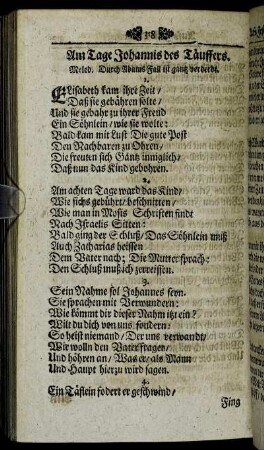 318
Am Tage Johannis des Täuffers.
Melod. Durch Adams Fall ist gantz verderbt.
1.
ELisabeth kam ihre Zeit/
Daß sie gebähren solte/
Und sie gebahr zu ihrer Freud
Ein Söhnlein/ wie sie wolte:
Bald kam mit Lust Die gute Post
Den Nachbaren zu Ohren/
Die freuten sich Gantz inniglich/
Daß nun das Kind gebohren.
2.
Am achten Tage ward das Kind/
Wie sichs gebührt/ beschnitten/
Wie man in Mosis Schrifften findt
Nach Israelis Sitten:
Bald ging der Schluß/ Das Söhnlein muß
Auch Zacharias heissen
Dem Vater nach; Die Mutter sprach:
Den Schluß muß ich zerreissen.
3.
Sein Nahme sol Johannes seyn.
Sie sprachen mit Verwundern:
Wie kömmt dir dieser Nahm itzt ein?
Wilt du dich von uns sondern:
So heist niemand/ Der uns verwandt/
Wir wolln den Vater fragen/
Und hören an/ Was er/ als Mann
Und Haupt hierzu wird sagen.
4.
Ein Täflein fodert er geschwind/
Fing